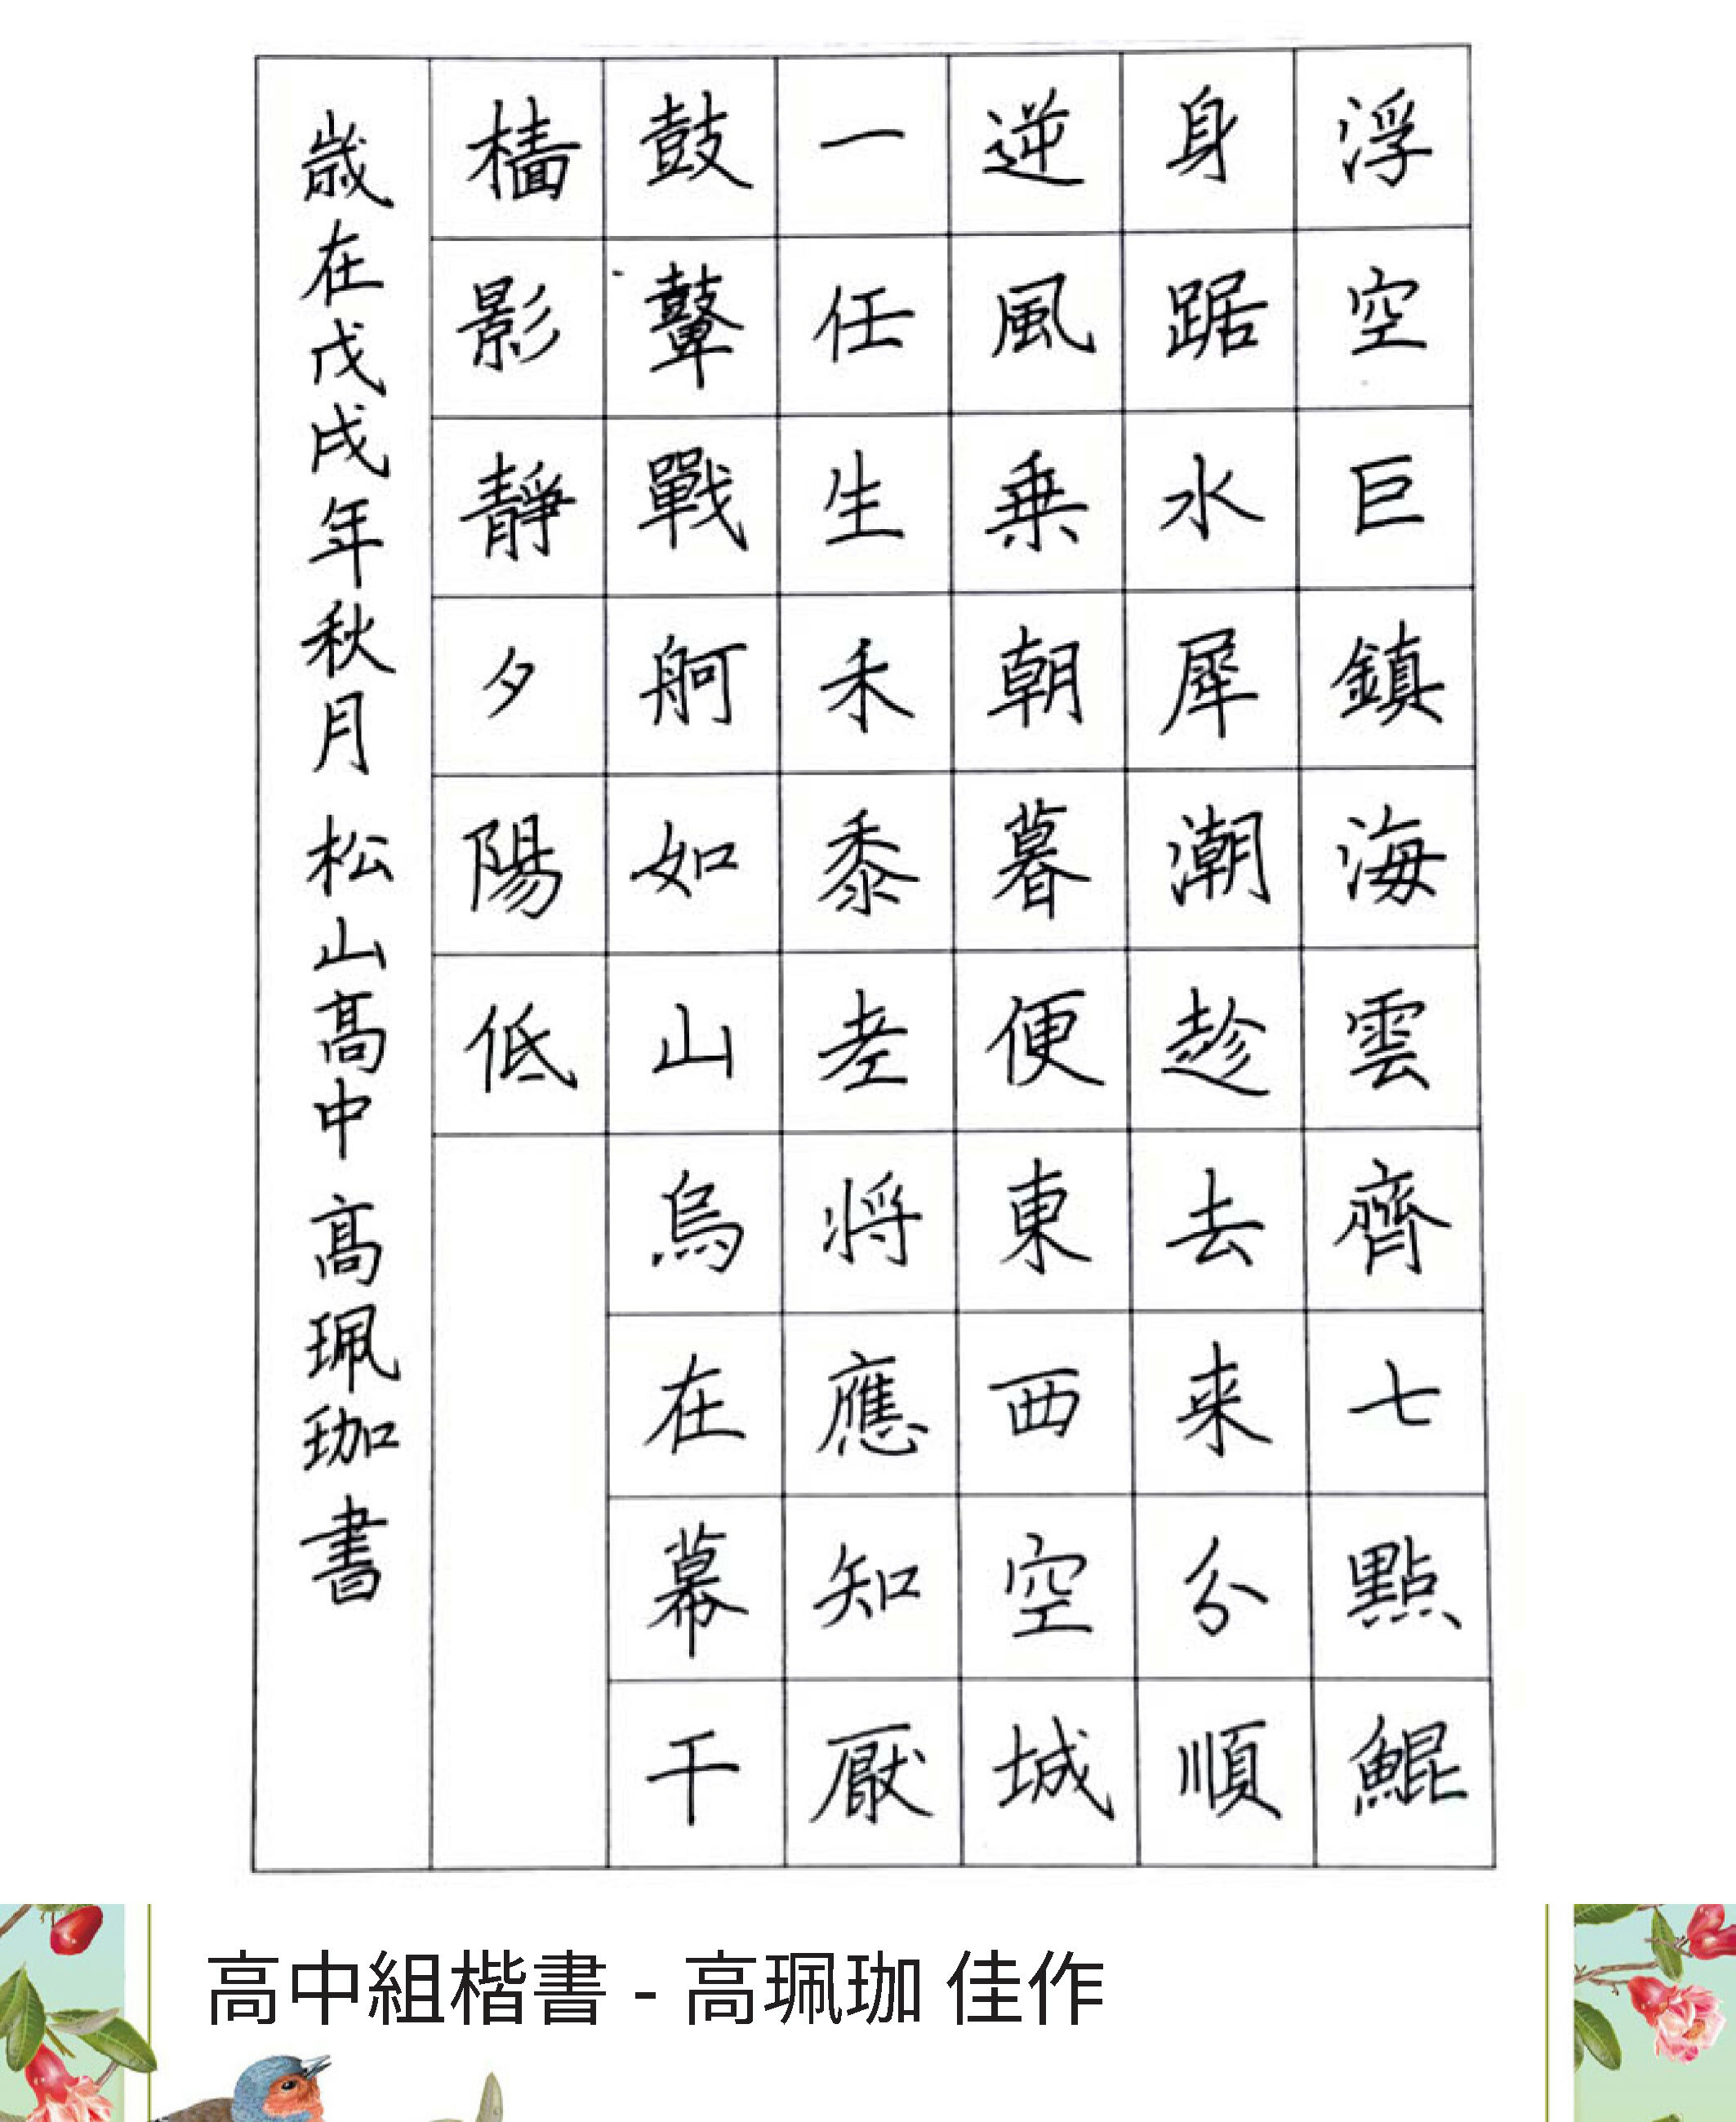 浮空巨鎮海雲齊七點鯤
身踞水犀潮趁去来分順
逆風乗朝暮便東西空城
一任生禾黍老将應知厭
鼓鼙戰舸如山烏在幕干
檣影靜夕陽低
歳在戊戌年秋月 松山髙中 髙珮珈書
高中組楷書 - 高珮珈 佳作